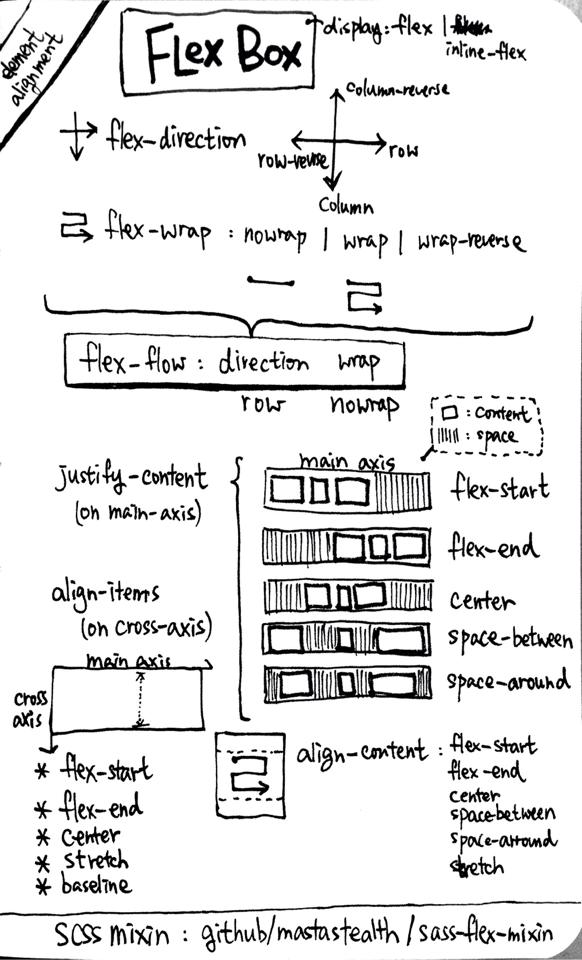 element
alignment
FLex Box
display: flex |
inline-flex
column-reverse
flex-direction
row-reverse
row
Column
flex-wrap : nowrap | wrap | wrap-reverse
flex-flow : direction wrap
row nowrap
: content
: space
justify-content
(on main-axis)
main axis
flex-start
flex-end
center
space-between
space-around
align-items
(on cross-axis)
main axis
cross
axis
* flex-start
* flex-end
* center
* stretch
* baseline
align-content : flex-start
flex-end
center
space-between
space-arround
stretch
SCSS mixin : github/mastastealth/sass-flex-mixin